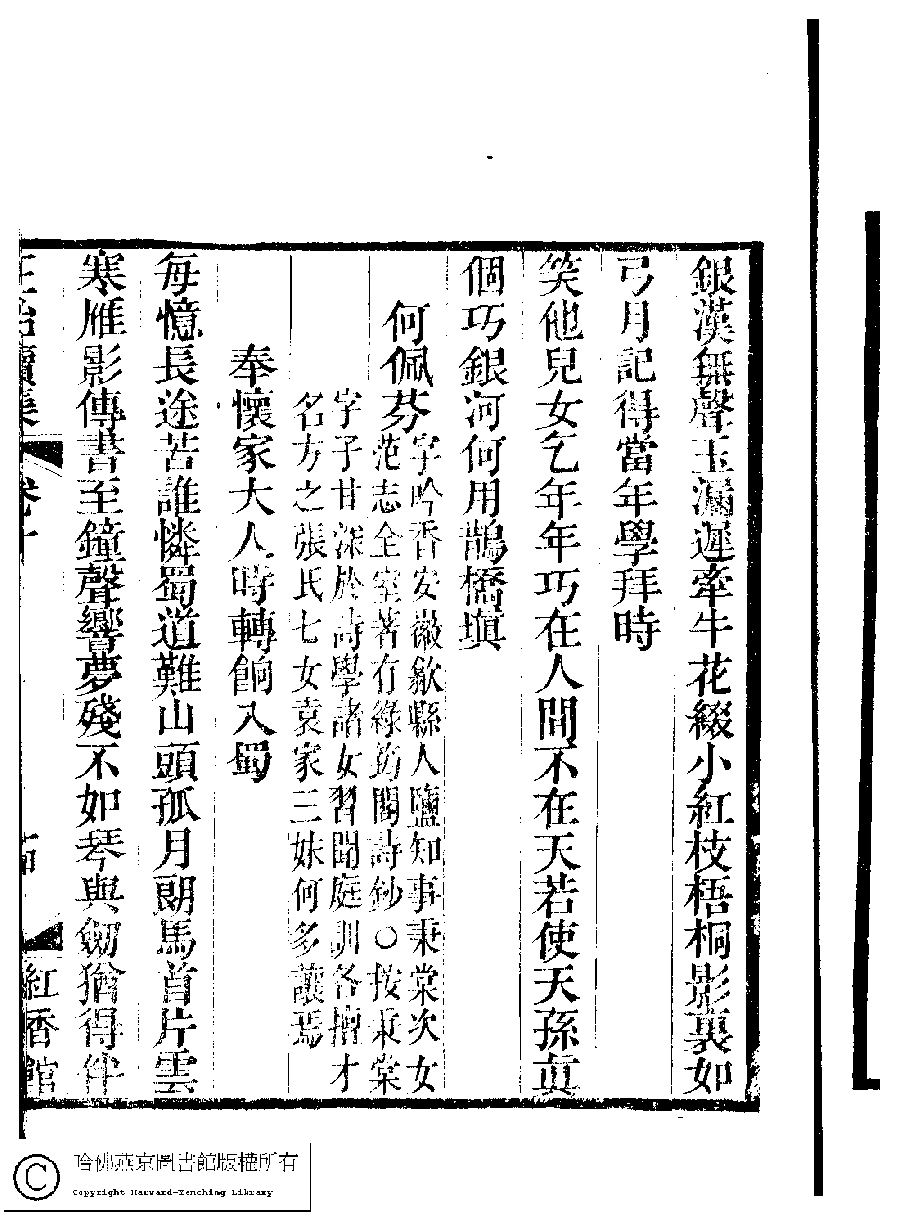 銀漢無聲玉漏遲牽牛花綴小紅枝梧桐影裏如
弓月記得當年學拜時
笑他兒女乞年年巧在人間不在天若使天孫眞
個巧銀河何用鵲橋塡
何佩芬
字吟香安徽歙縣人鹽知事秉棠次女
范志全室著有綠筠閣詩鈔○按秉棠
字子甘深於詩學諸女習聞庭訓各擅才
名方之張氏七女袁家三妹何多讓焉
奉懷家大人時轉餉入蜀
每憶長途苦誰憐蜀道難山頭孤月朗馬首片雲
寒雁影傳書至鐘聲響夢殘不如琴與劒猶得伴
正始續集 卷十 紅香館
哈佛燕京圖書館版權所有
Copyright Harvard-Yenching Library